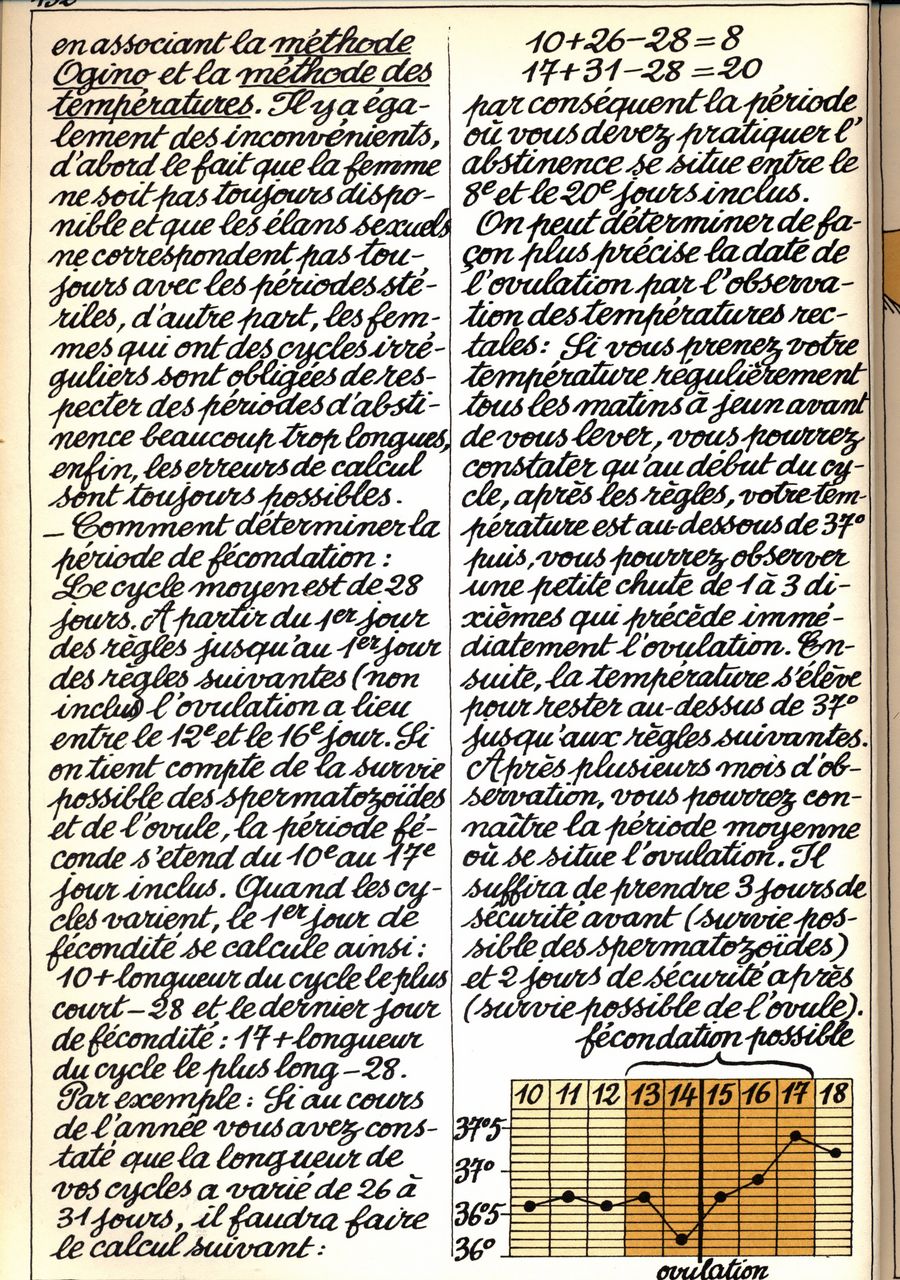 en associant la méthode
Ogino et la méthode des
températures. Il y a éga-
lement des inconvénients,
d'abord le fait que la femme
ne soit pas toujours dispo-
nible et que les élans sexuels
ne correspondent pas tou-
jours avec les périodes sté-
riles, d'autre part, les fem-
mes qui ont des cycles irré-
guliers sont obligées de res-
pecter des périodes d'absti-
nence beaucoup trop longues,
enfin, les erreurs de calcul
sont toujours possibles.
– Comment déterminer la
période de fécondation :
Le cycle moyen est de 28
jours. A partir du 1er jour
des règles jusqu'au 1er jour
des règles suivantes (non
inclus) l'ovulation a lieu
entre le 12e et le 16e jour. Si
on tient compte de la survie
possible des spermatozoïdes
et de l'ovule, la période fé-
conde s'etend du 10e au 17e
jour inclus. Quand les cy-
cles varient, le 1er jour de
fécondité se calcule ainsi :
10 + longueur du cycle le plus
court – 28 et le dernier jour
de fécondité : 17 + longueur
du cycle le plus long – 28.
Par exemple : Si au cours
de l'année vous avez cons-
taté que la longueur de
vos cycles a varié de 26 à
31 jours, il faudra faire
le calcul suivant :
10+26–28=8
17+31–28=20
par conséquent la période
où vous devez pratiquer l'
abstinence se situe entre le
8e et le 20e jours inclus.
On peut déterminer de fa-
çon plus précise la date de
l'ovulation par l'observa-
tion des températures rec-
tales : Si vous prenez votre
température régulièrement
tous les matins à jeun avant
de vous lever, vous pourrez
constater qu'au début du cy-
cle, après les règles, votre tem-
pérature est au-dessous de 37°
puis, vous pourrez observer
une petite chute de 1 à 3 di-
xièmes qui précède immé-
diatement l'ovulation. En-
suite, la température s'élève
pour rester au-dessus de 37°
jusqu'aux règles suivantes.
Après plusieurs mois d'ob-
servation, vous pourrez con-
naître la période moyenne
où se situe l'ovulation. Il
suffira de prendre 3 jours de
sécurité avant (survie pos-
sible des spermatozoïdes)
et 2 jours de sécurité après
(survie possible de l'ovule).
fécondation possible
10 11 12 13 14 15 16 17 18
37°5
37°
36°5
36°
ovulation